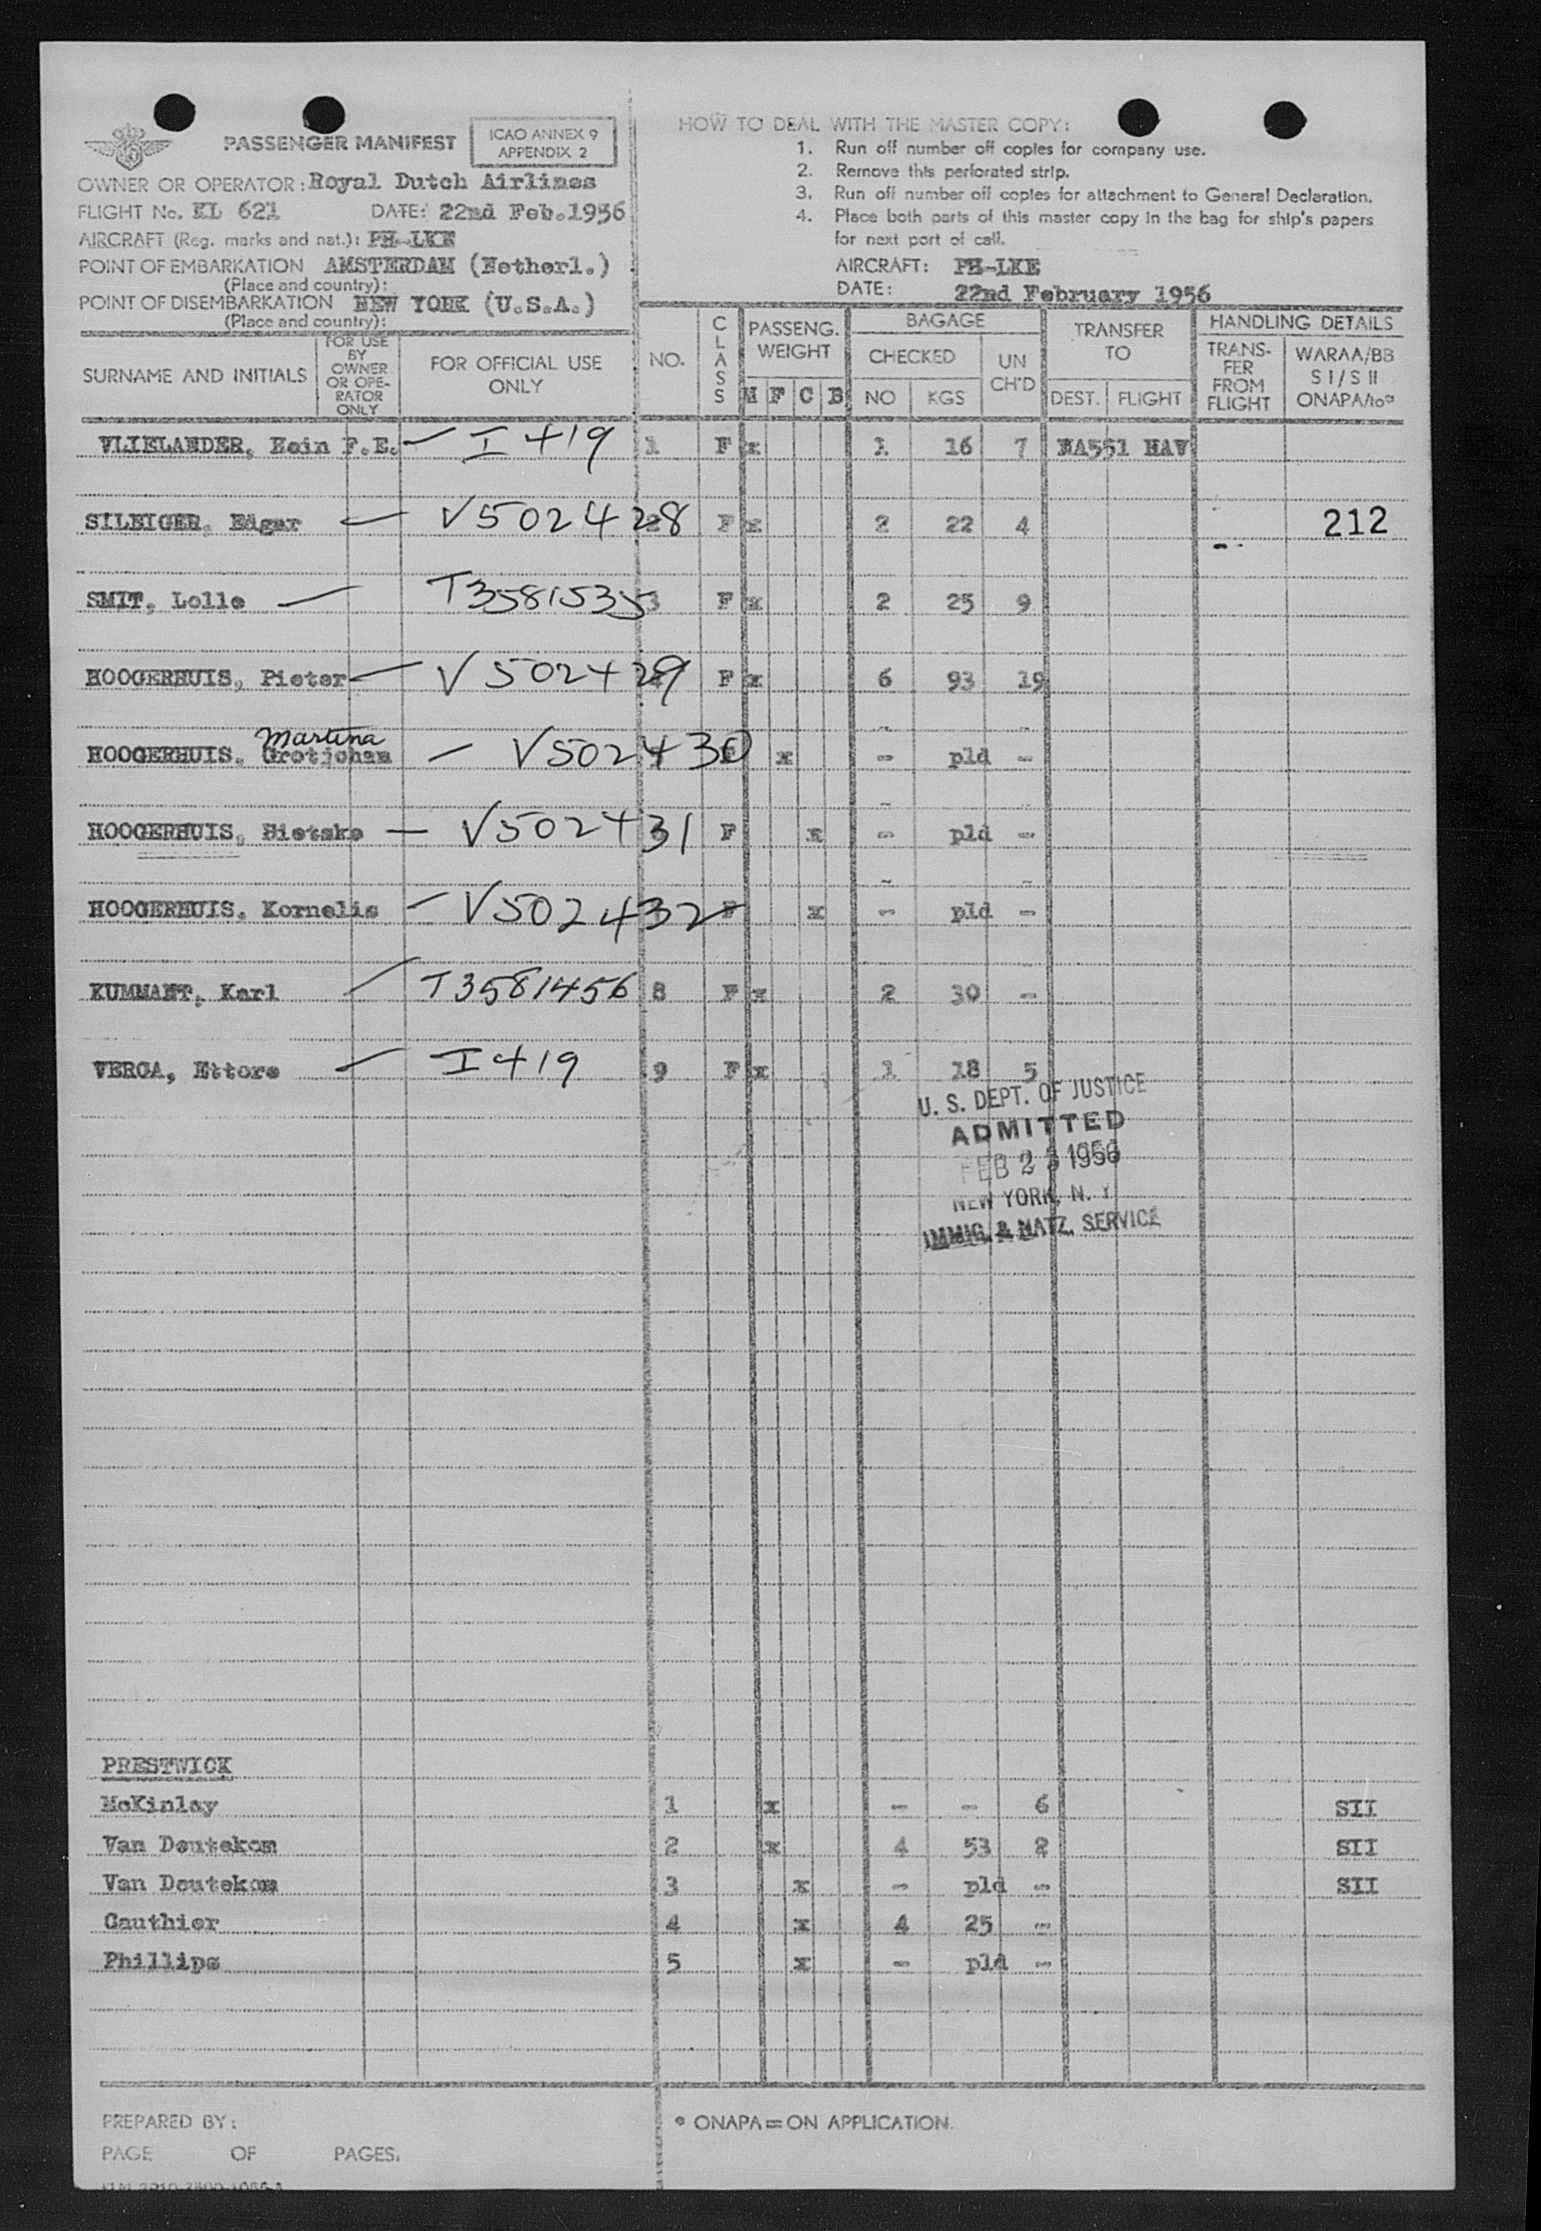 PASSENGER MANIFEST
ICAO ANNEX 9
APPENDIX 2
OWNER OR OPERATOR: Royal Dutch Airlines
FLIGHT No. KL 621 DATE: 22nd Feb.1956
AIRCRAFT (Reg. marks and nat.): PH-LKE
POINT OF EMBARKATION AMSTERDAM (Netherl.)
(Place and country):
POINT OF DISEMBARKATION NEW YORK (U.S.A.)
(Place and country):
HOW TO DEAL WITH THE MASTER COPY:
1. Run off number off copies for company use.
2. Remove this perforated strip.
3. Run off number off copies for attachment to General Declaration.
4. Place both parts of this master copy in the bag for ship's papers
for next port of call.
AIRCRAFT: PH-LKE
DATE: 22nd February 1956
SURNAME AND INITIALS
FOR USE
BY
OWNER
OR OPE-
RATOR
ONLY
FOR OFFICIAL USE
ONLY
NO.
CLASS
PASSENG.
WEIGHT
M F C B
BAGAGE
CHECKED
NO KGS
UN
CH'D
TRANSFER
TO
DEST. FLIGHT
HANDLING DETAILS
TRANS-
FER
FROM
FLIGHT
WARAA/BB
S I / S II
ONAPA/to*
VLIELANDER, Hein F.E. — I 419 1 F x 1 16 7 NA551 HAV
SILBIGER, Edgar — V502428 F x 2 22 4 212
SMIT, Lolle — T3581535 3 F x 2 25 9
HOOGERHUIS, Pieter — V502429 F x 6 93 19
Martina
HOOGERHUIS, Grotjohan — V502430 x - pld -
HOOGERHUIS, Sietske — V502431 F x - pld -
HOOGERHUIS, Kornelis — V502432 F x - pld -
KUMMANT, Karl — T3581456 8 F x 2 30 -
VERGA, Ettore — I 419 9 F x 1 18 5
U. S. DEPT. OF JUSTICE
ADMITTED
FEB 23 1956
NEW YORK, N. Y.
IMMIG. & NATZ. SERVICE
PRESTWICK
McKinlay 1 x - - 6 SII
Van Doutekom 2 x 4 53 2 SII
Van Doutekom 3 x - pld - SII
Gauthier 4 x 4 25 -
Phillips 5 x - pld -
PREPARED BY:
PAGE OF PAGES.
* ONAPA = ON APPLICATION.